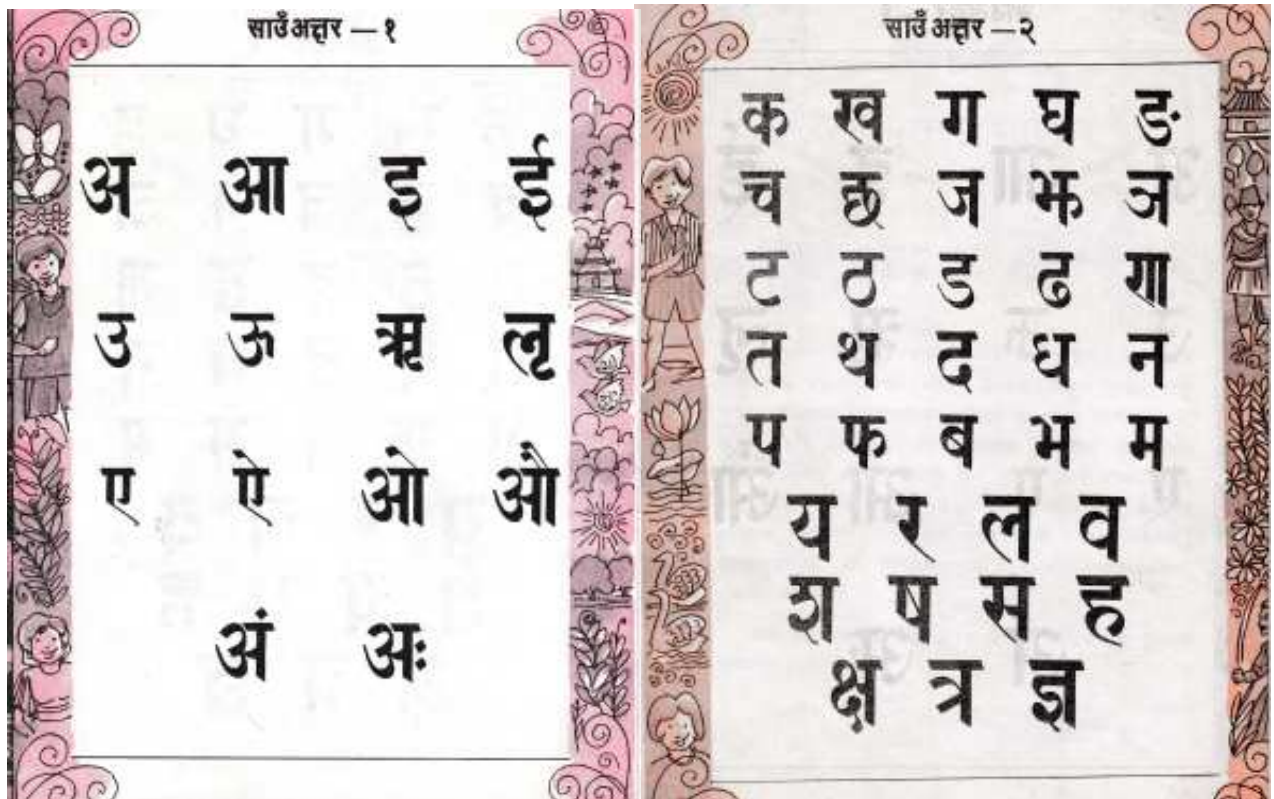 साउँ अक्षर — १
अ आ इ ई
उ ऊ ऋ लृ
ए ऐ ओ औ
अं अः
साउँ अक्षर — २
क ख ग घ ङ
च छ ज झ ञ
ट ठ ड ढ ण
त थ द ध न
प फ ब भ म
य र ल व
श ष स ह
क्ष त्र ज्ञ